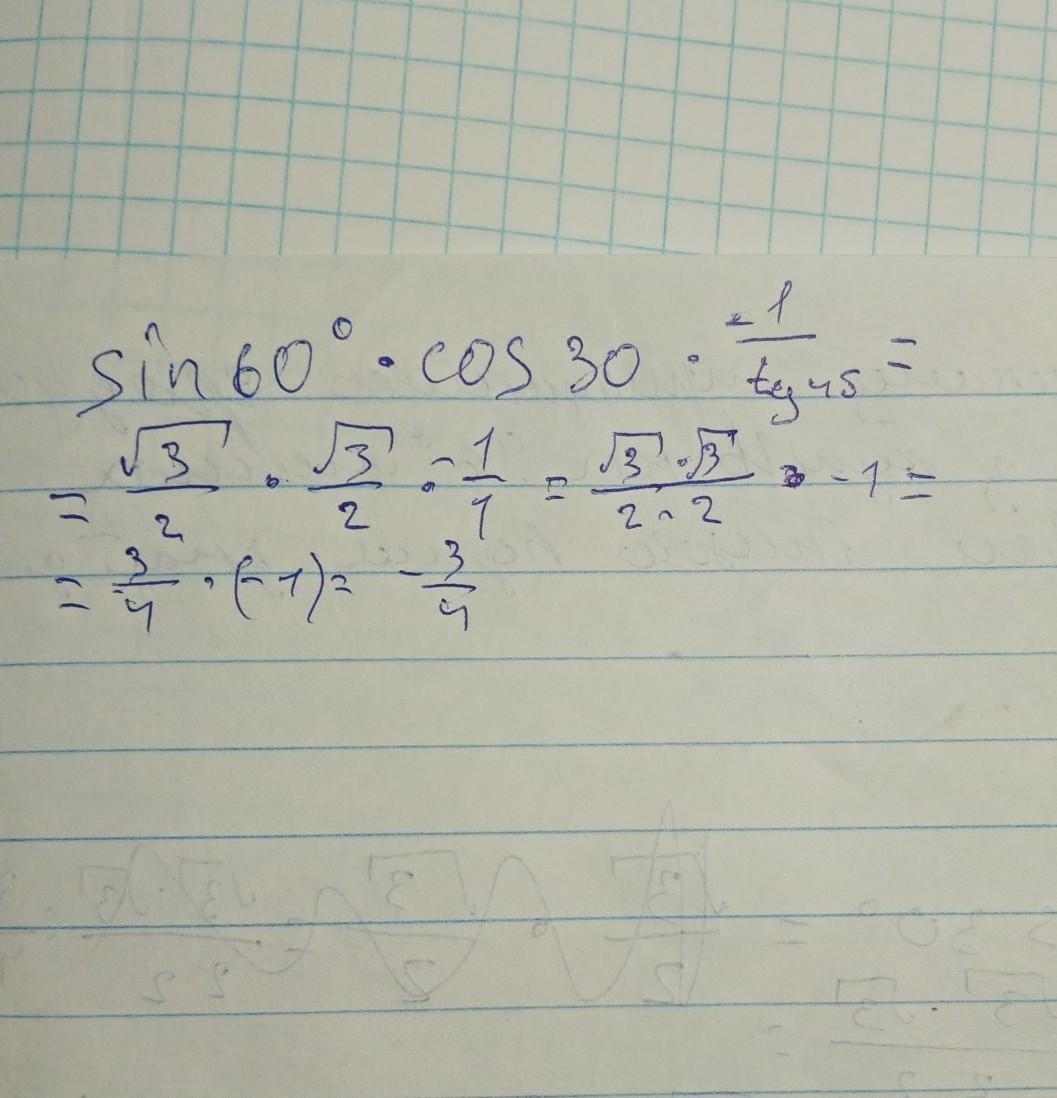 sin 60° · cos 30 · -1/tg 45 =
= √3/2 · √3/2 · -1/1 = √3·√3/2·2 · -1 =
= 3/4 · (-1) = -3/4